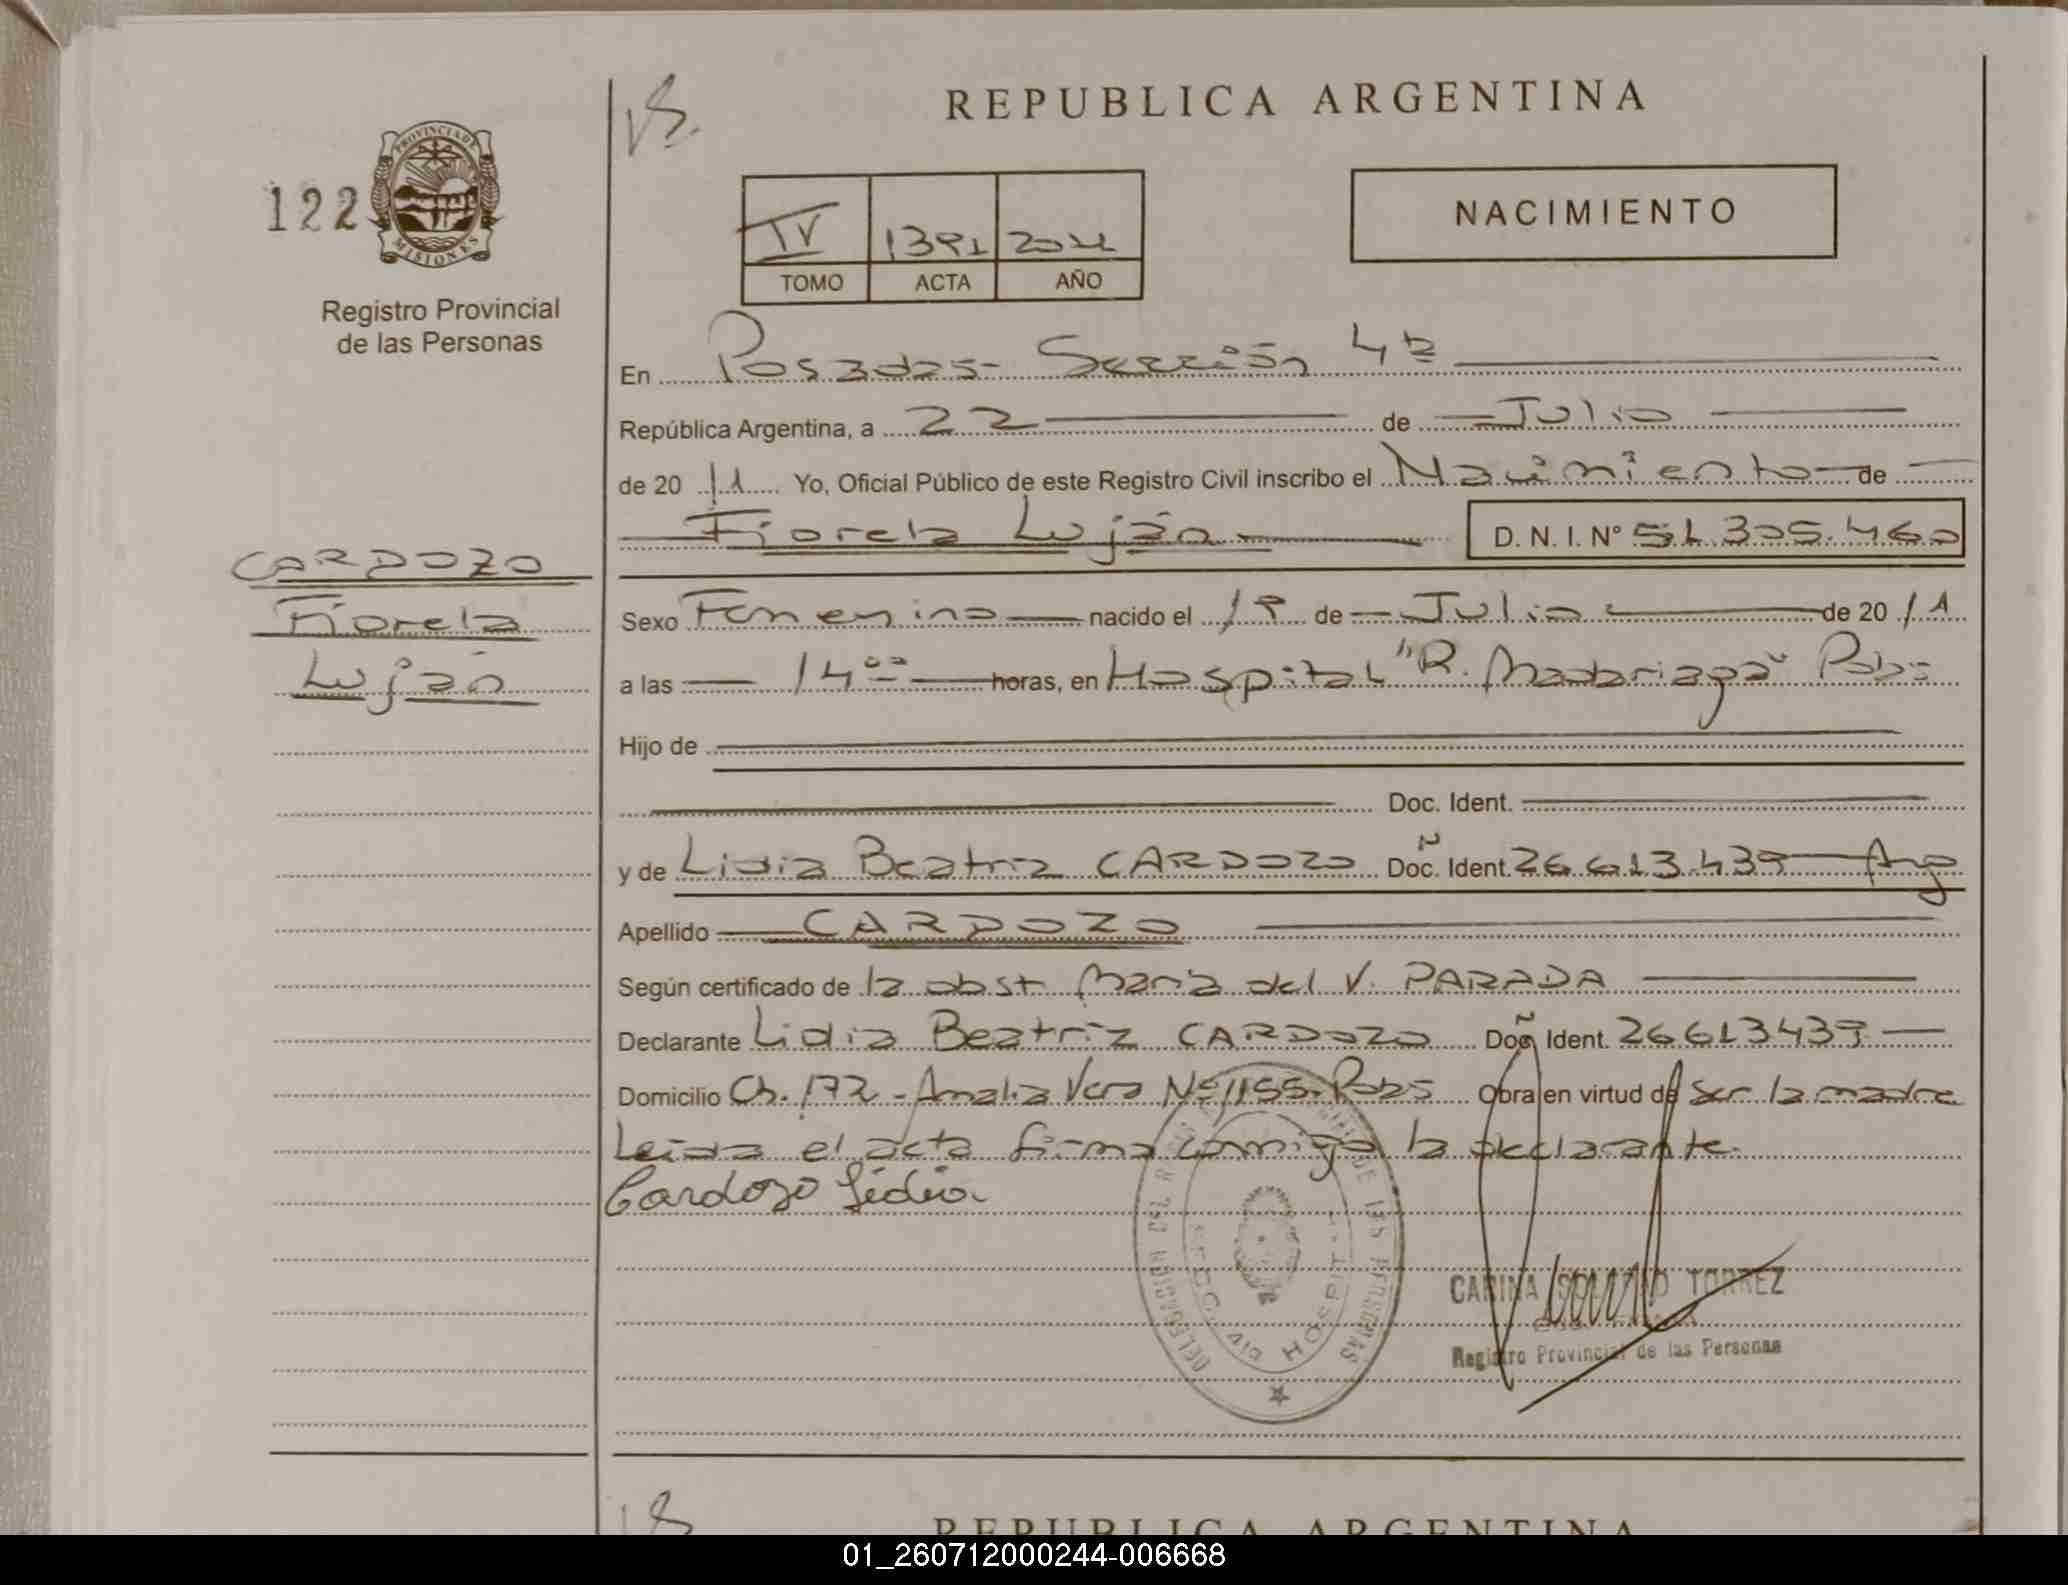 REPUBLICA ARGENTINA
122
PROVINCIA DE MISIONES
Registro Provincial
de las Personas
NACIMIENTO
IV 1391 2011
TOMO ACTA AÑO
En Posadas- Sección 4ta
República Argentina, a 22 de Julio
de 20 11 Yo, Oficial Público de este Registro Civil inscribo el Nacimiento de
Fiorela Luján D. N. I. Nº 51.305.460
CARDOZO
Fiorela
Luján
Sexo Femenino nacido el de Julio de 20 11
a las 14ºº horas, en Hospital "R. Madariaga" Pdas
Hijo de
Doc. Ident.
y de Lidia Beatriz CARDOZO Doc. Ident. 26.613.439 Arg
Apellido CARDOZO
Según certificado de la obst María del V. PARADA
Declarante Lidia Beatriz CARDOZO Doc Ident. 26613439
Domicilio Ch. 172 - Amalia Vera Nº 1155- Pdas Obra en virtud de ser la madre
Leída el acta firma conmigo la declarante.
Cardozo Lidia
DELEGACION DEL REGISTRO DE LAS PERSONAS
SECC. 4ta HOSPIT.
CARINA TORREZ
Registro Provincial de las Personas
REPUBLICA ARGENTINA
01_260712000244-006668